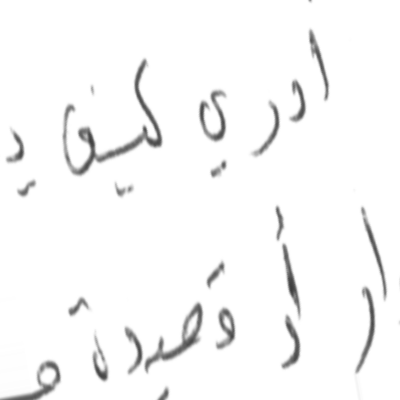 أدري كيف يد
ار أد قصيدة